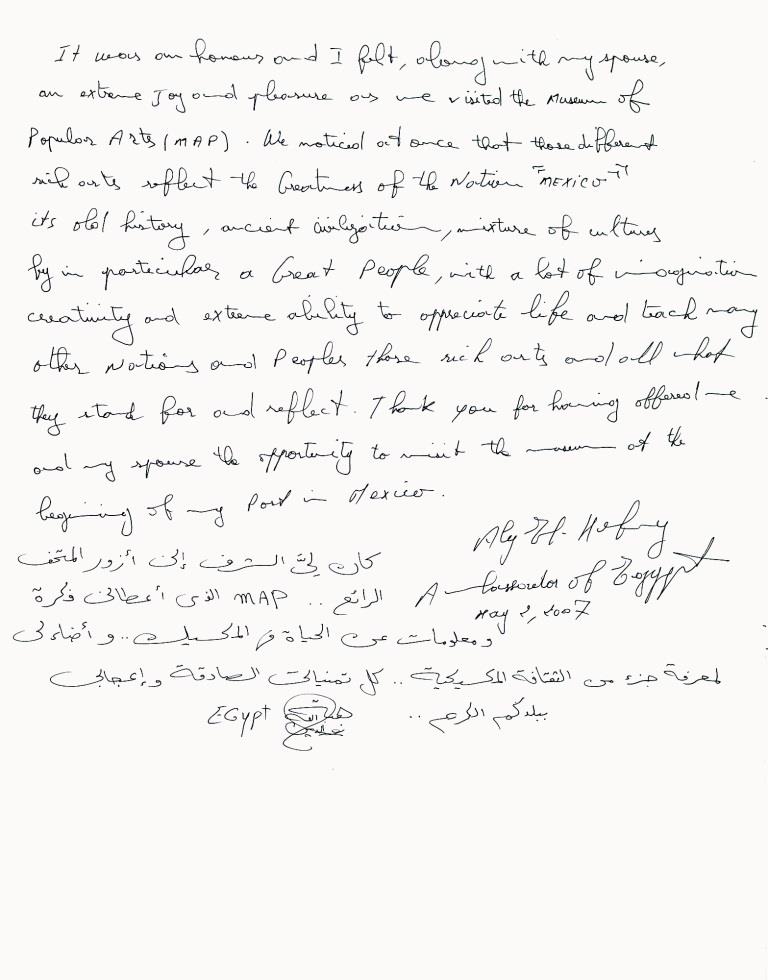 It was an honour and I felt, along with my spouse,
an extreme Joy and pleasure as we visited the Museum of
Popular Arts (MAP). We noticed at once that those different
rich arts reflect the Greatness of the Nation "MEXICO"
its old history, ancient civilization, mixture of cultures
by in particular a Great People, with a lot of imagination
creativity and extreme ability to appreciate life and teach many
other Nations and Peoples those rich arts and all what
they stand for and reflect. Thank you for having offered me
and my spouse the opportunity to visit the museum at the
begining of my Post in Mexico.
Aly H. Hefny
Ambassador of Egypt
May 2, 2007
كان لي الشرف إني أزور المتحف
الرائع .. MAP الذي أعطاني فكرة
ومعلومات عن الحياة في المكسيك .. وأضاء لي
لمعرفة جزء من الثقافة المكسيكية .. كل تمنياتي الصادقة وإعجابي
ببلدكم الكريم ..
EGypt